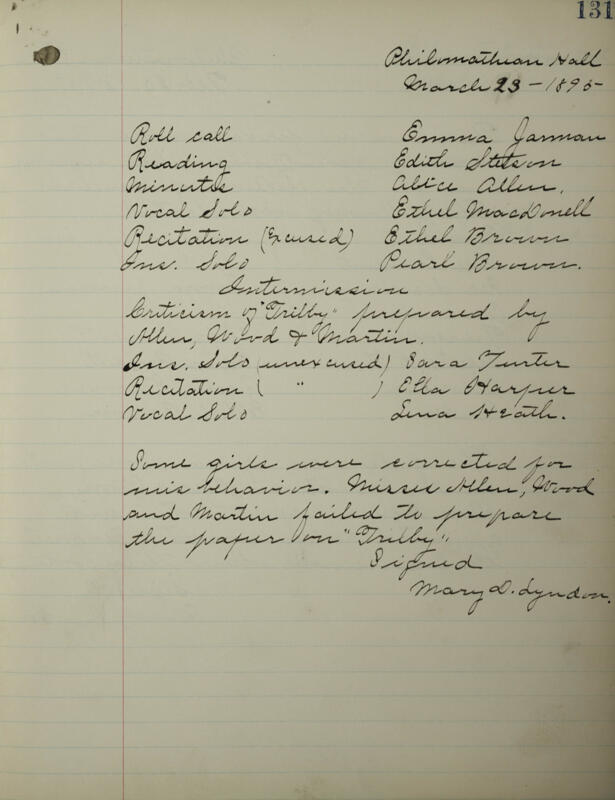 131
Philomathean Hall
March 23 - 1895
Roll call Emma Jarman
Reading Edith Stetson
Minutes Alice Allen.
Vocal Solo Ethel MacDonell
Recitation (Excused) Ethel Brown
Ins. Solo Pearl Brown.
Intermission
Criticism of "Trilby" prepared by
Allen, Wood & Martin.
Ins. Solo (unexcused) Sara
Recitation ( " ) Ella Harper
Vocal Solo Lena Heath.
Some girls were corrected for
mis behavior. Misses Allen, Wood
and Martin failed to prepare
the paper on "Trilby".
Signed
Mary D. Lyndon.